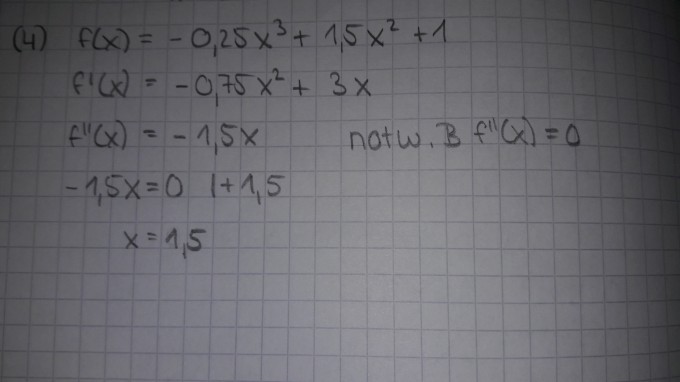 (4) f(x) = - 0,25x³ + 1,5x² + 1
f'(x) = - 0,75x² + 3x
f''(x) = - 1,5x notw. B f''(x) = 0
- 1,5x = 0 | + 1,5
x = 1,5